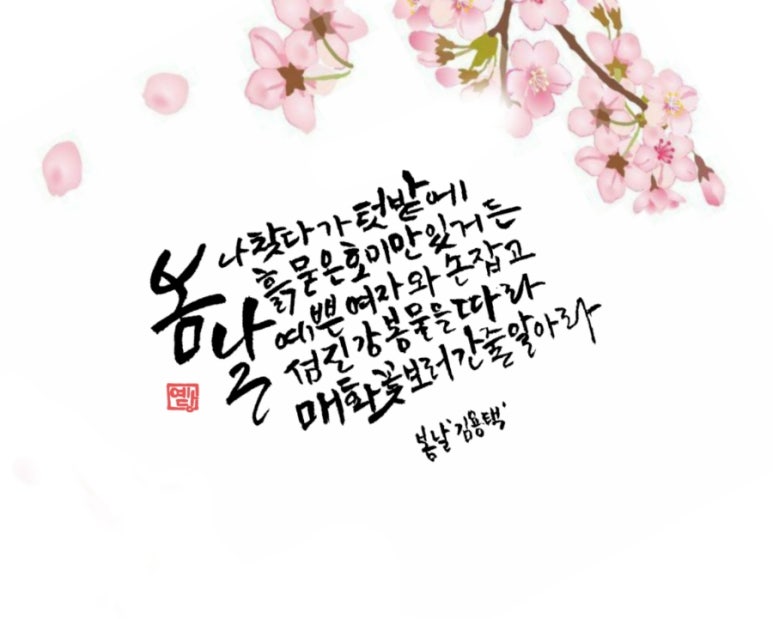 봄날
나 찾다가 텃밭에
흙 묻은 호미만 있거든
예쁜 여자와 손잡고
섬진강 봄물을 따라
매화꽃 보러 간 줄 알아라
봄날 '김용택'